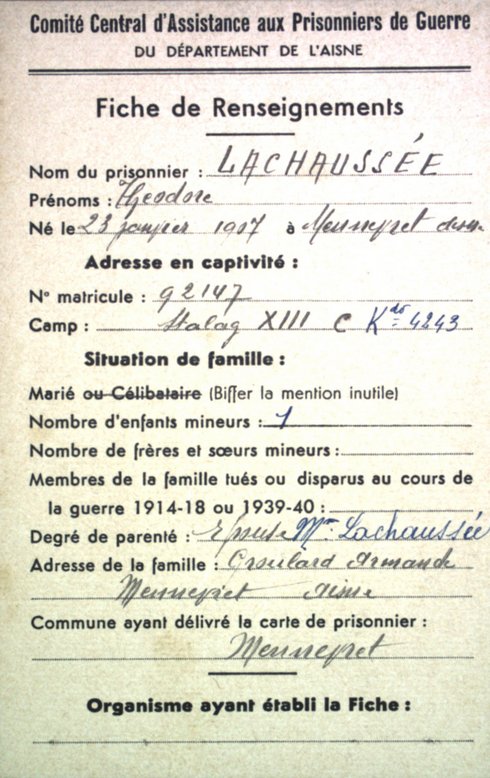 Comité Central d'Assistance aux Prisonniers de Guerre
DU DÉPARTEMENT DE L'AISNE
Fiche de Renseignements
Nom du prisonnier : LACHAUSSÉE
Prénoms : Théodore
Né le 23 janvier 1907 à Mennevret Aisne
Adresse en captivité :
N° matricule : 92147
Camp : Stalag XIII C Kdo 4243
Situation de famille :
Marié ou Célibataire (Biffer la mention inutile)
Nombre d'enfants mineurs : 1
Nombre de frères et sœurs mineurs :
Membres de la famille tués ou disparus au cours de
la guerre 1914-18 ou 1939-40 :
Degré de parenté : Epouse Mme Lachaussée
Adresse de la famille : Groulard Armande
Mennevret Aisne
Commune ayant délivré la carte de prisonnier :
Mennevret
Organisme ayant établi la Fiche :